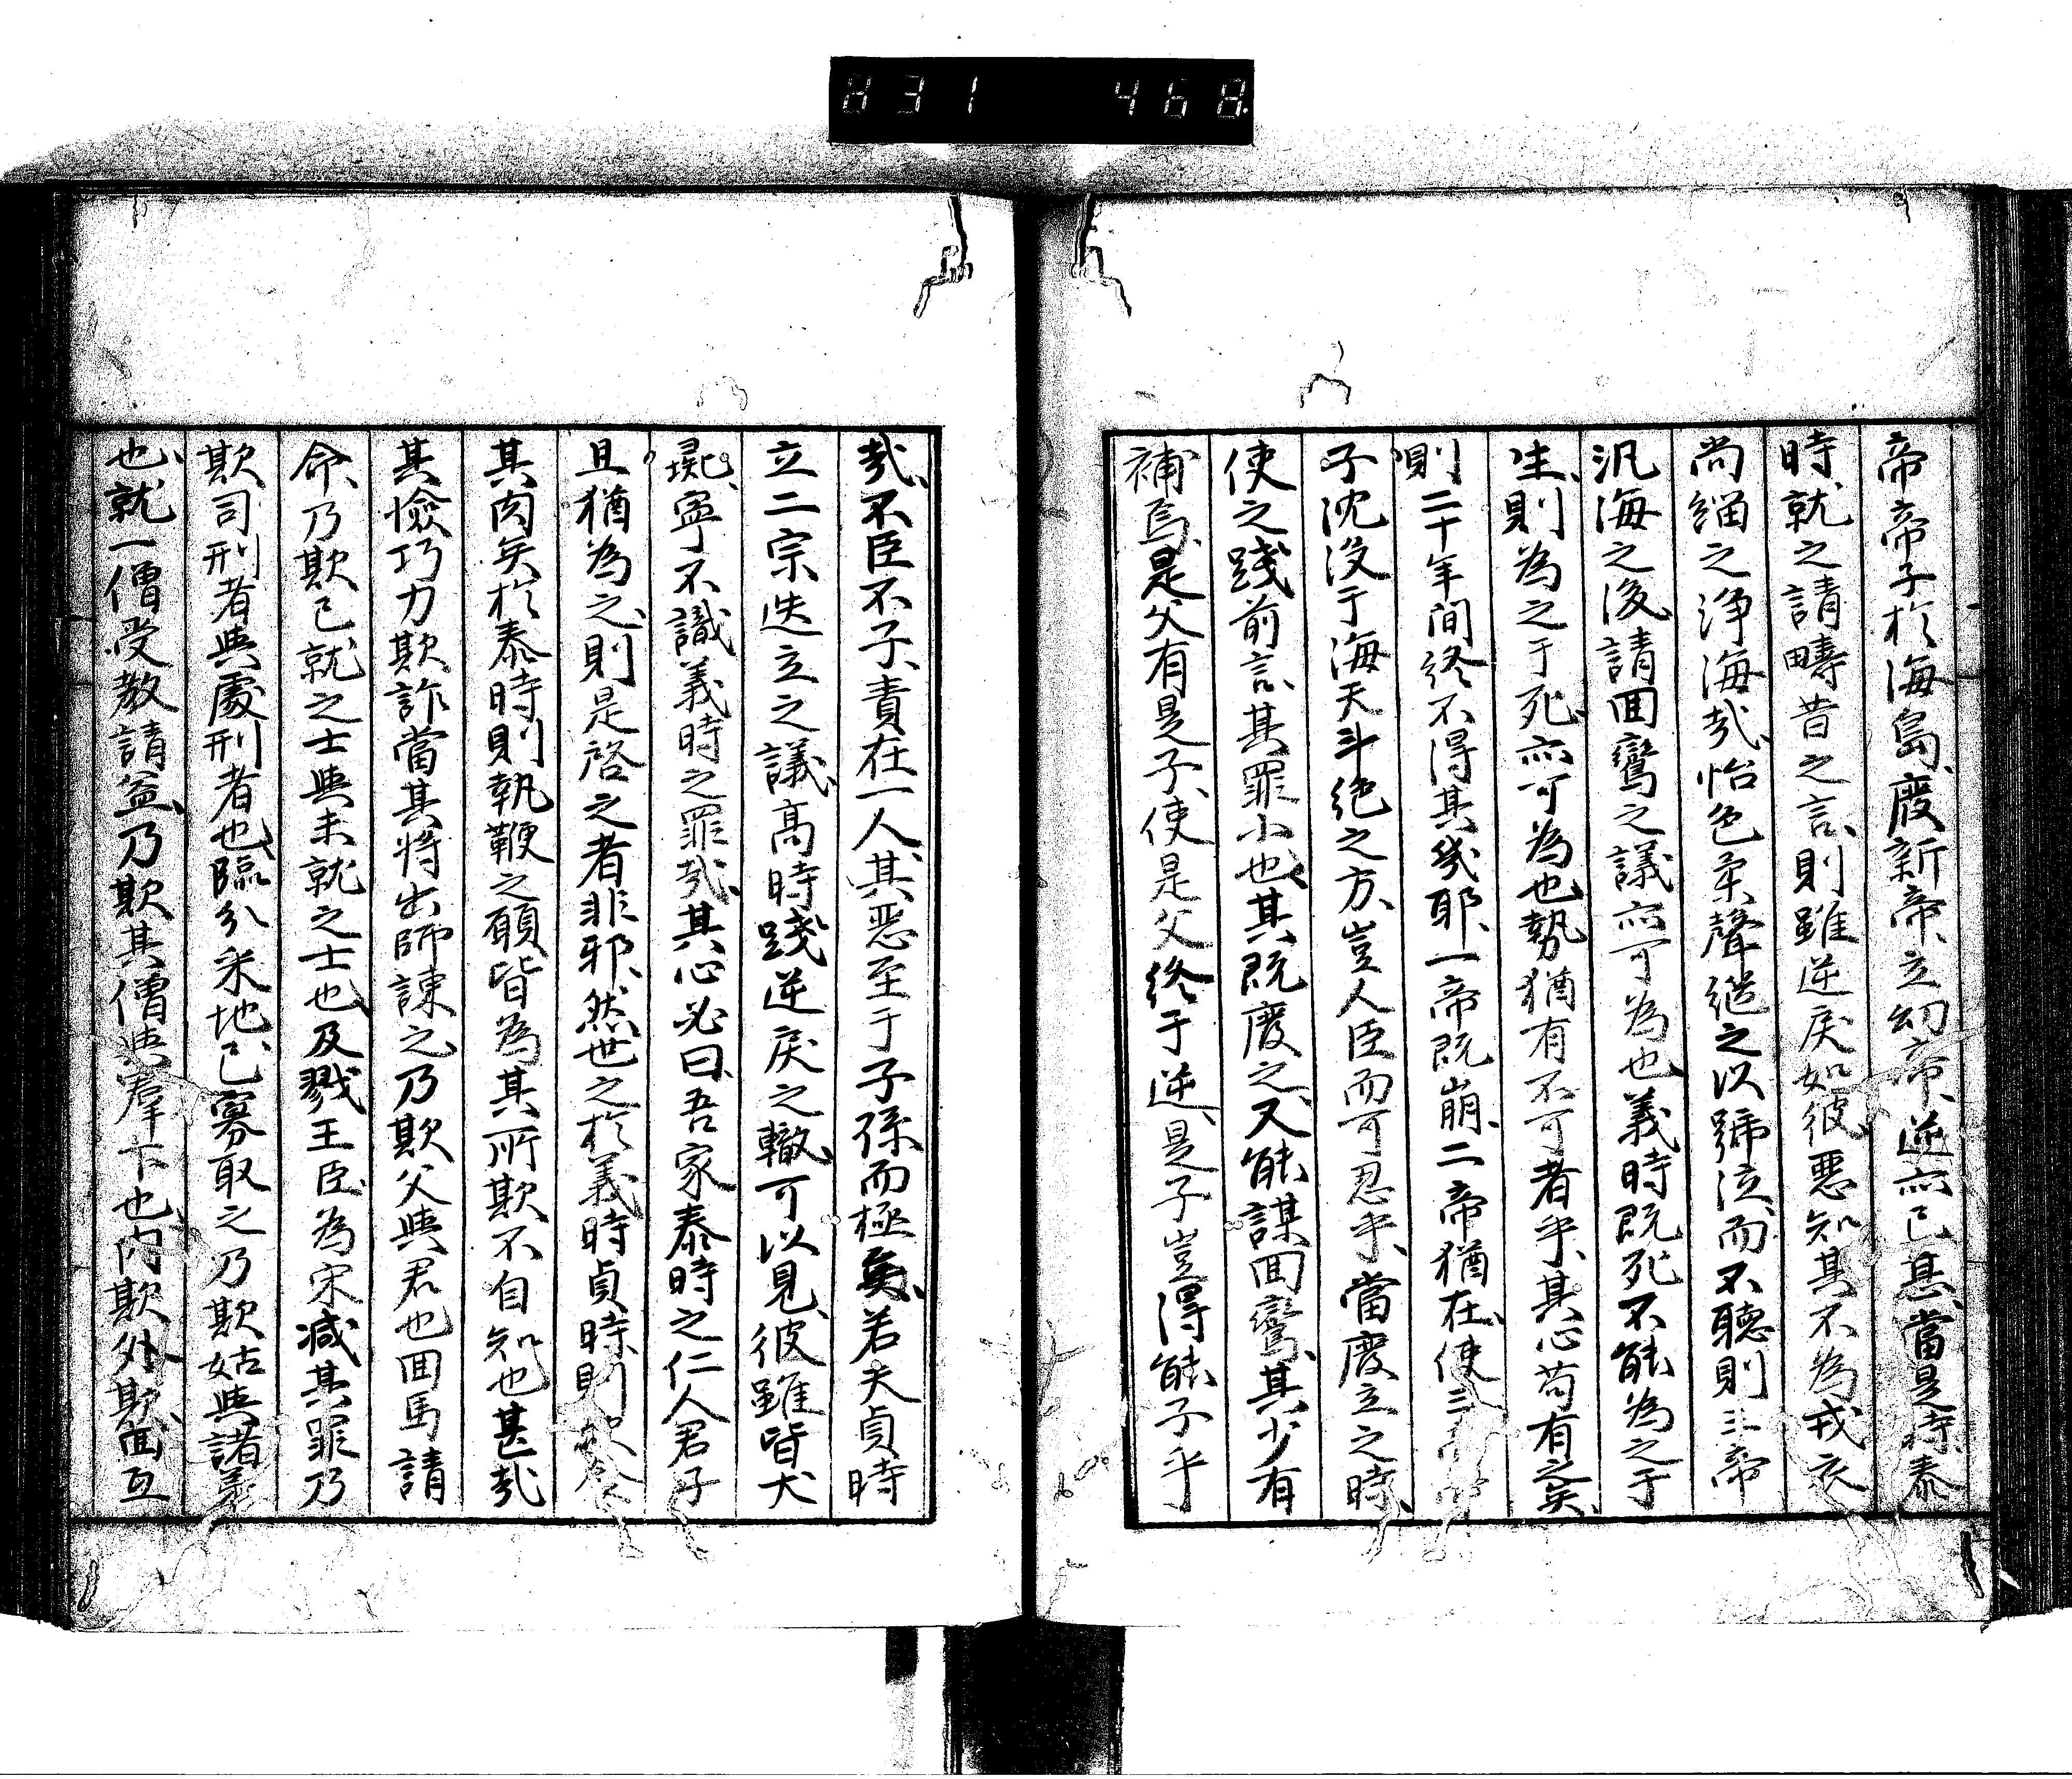 831 468
帝帝子於海島、廢新帝、立幼帝、逆亦已甚、當是時泰
時就之請疇昔之言、則雖逆戾如彼、悪知其不為戎衣
尚緇之浄海哉、怡色柔聲繼之以號泣、而不聽則三帝
汎海之後請回鸞之議亦可為也、義時既死不能為之于
生、則為之于死、亦可為也、勢猶有不可者乎、其心苟有之矣、
則二十年間終不得其幾耶、一帝既崩、二帝猶在、使三
子沈没于海天斗絶之方、豈人臣而可忍乎、當廢立之時、
使之踐前言、其罪小也、其既廢之、又能謀回鸞、其少有
補焉、是父有是子、使是父終于逆、是子豈得能子乎
哉、不臣不子、責在一人、其悪至于子孫而極矣、若夫貞時
立二宗迭立之議、高時踐逆戾之轍、可以見、彼雖皆犬
彘、寧不識義時之罪哉、其心必曰、吾家泰時之仁人君子
且猶為之、則是啓之者非邪、然世之於義時貞時則
其肉矣於泰時則執鞭之願、皆為其所欺不自知也甚哉
其憸巧力欺詐當其將出師諫之、乃欺父與君也回馬請
命、乃欺已就之士與未就之士也、及戮王臣、為宋減其罪乃
欺司刑者與處刑者也、臨分釆地、己寡取之乃欺姑與諸弟
也、就一僧受教請益、乃欺其僧與羣下也、内欺外欺、回互